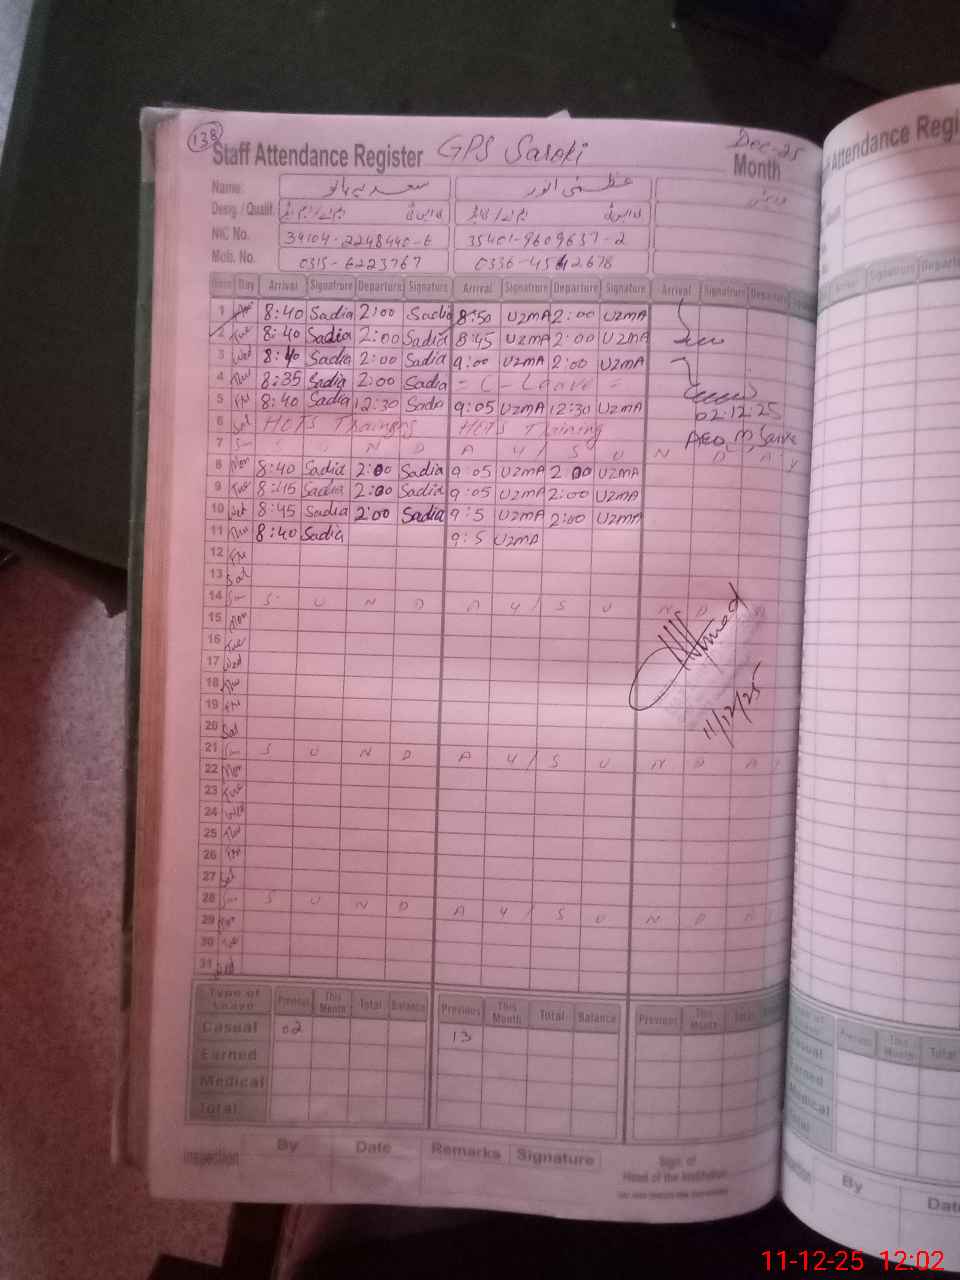 138
Staff Attendance Register GPS Saroki Dec-25
Month
Name: سعدیہ بانو عظمیٰ انور
Desig. / Qualif.
NIC No. 34104-2248440-6 35401-9609637-2
Mob. No. 0315-6223767 0336-4542678
Date Day Arrival Signature Departure Signature Arrival Signature Departure Signature Arrival Signature Departure
1 8:40 Sadia 2:00 Sadia 8:50 UZMA 2:00 UZMA
2 Tue 8:40 Sadia 2:00 Sadia 8:45 UZMA 2:00 UZMA
3 Wed 8:40 Sadia 2:00 Sadia 9:00 UZMA 2:00 UZMA
4 Thu 8:35 Sadia 2:00 Sadia = C-Leave =
5 Fri 8:40 Sadia 12:30 Sadia 9:05 UZMA 12:30 UZMA 02.12.25
6 Sat HOTS Trainings HOTS Training AEO
7 Sun N D A Y / S U N D A Y
8 Mon 8:40 Sadia 2:00 Sadia 9:05 UZMA 2:00 UZMA
9 Tue 8:45 Sadia 2:00 Sadia 9:05 UZMA 2:00 UZMA
10 Wed 8:45 Sadia 2:00 Sadia 9:5 UZMA 2:00 UZMA
11 Thu 8:40 Sadia 9:5 UZMA
12 Fri
13 Sat
14 Sun S U N D A Y / S U N D A
15 Mon
16 Tue
17 Wed
18 Thu
19 Fri
20 Sat
21 Sun S U N D A Y / S U N D A
22 Mon
23 Tue
24 Wed
25 Thu
26 Fri
27 Sat
28 Sun S U N D A Y / S U N D A
29 Mon
30 Tue
31 Wed
Ahmad
11/12/25
Type of Leave Previous This Month Total Balance Previous This Month Total Balance Previous This Month Total
Casual 02 13
Earned
Medical
Total
Inspection By Date Remarks Signature Sign. of
Head of the Institution
Attendance Regi
Signature Departu
Previous This Month Total
By Date
11-12-25 12:02